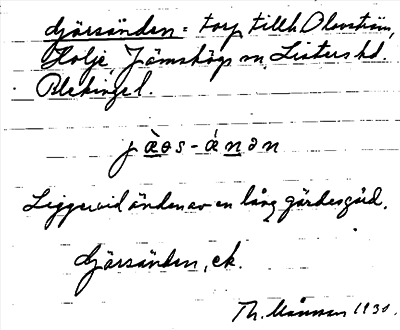 djärsänden = torp tillh. Olovström,
Holje Jämshögs sn, Listers hd.
Blekinge l.
jàəs-ánən
Ligger vid änden av en lång gärdesgård.
djärsänden, ek.
Th. Månsson 1930.